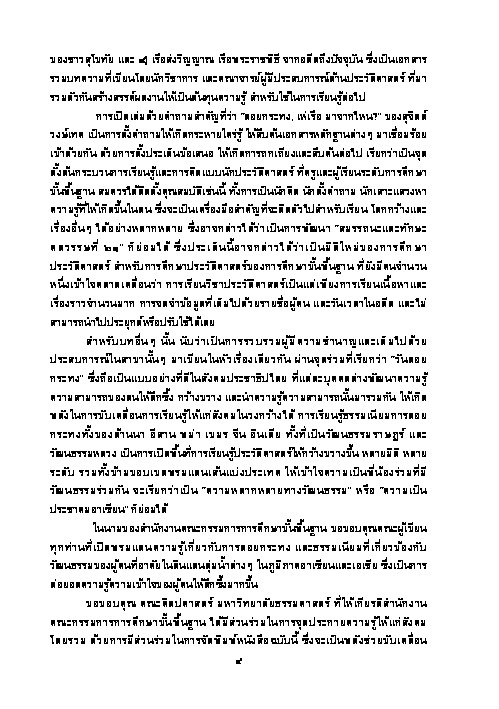 ของชาวสุโขทัย และ ๔) เรือส่งวิญญาณ เรือพระราชพิธี จากอดีตถึงปัจจุบัน ซึ่งเป็นเอกสาร
รวมบทความที่เขียนโดยนักวิชาการ และคณาจารย์ผู้มีประสบการณ์ด้านประวัติศาสตร์ ที่มา
รวมตัวกันสร้างสรรค์ผลงานให้เป็นต้นทุนความรู้ สำหรับใช้ในการเรียนรู้ต่อไป
การเปิดเล่มด้วยคำถามสำคัญที่ว่า "ลอยกระทง, เห่เรือ มาจากไหน?" ของสุจิตต์
วงษ์เทศ เป็นการตั้งคำถามให้เกิดกระหายใคร่รู้ ให้สืบค้นเอกสารหลักฐานต่างๆ มาเชื่อมร้อย
เข้าด้วยกัน ด้วยการตั้งประเด็นข้อเสนอ ให้เกิดการถกเถียงและสืบค้นต่อไป เรียกว่าเป็นจุด
ตั้งต้นกระบวนการเรียนรู้และการคิดแบบนักประวัติศาสตร์ ที่ครูและผู้เรียนระดับการศึกษา
ขั้นพื้นฐาน สมควรได้ติดตั้งคุณสมบัติเช่นนี้ ทั้งการเป็นนักคิด นักตั้งคำถาม นักเสาะแสวงหา
ความรู้ที่ให้เกิดขึ้นในตน ซึ่งจะเป็นเครื่องมือสำคัญที่จะติดตัวไปสำหรับเรียน โลกกว้างและ
เรื่องอื่นๆ ได้อย่างหลากหลาย ซึ่งอาจกล่าวได้ว่าเป็นการพัฒนา "สมรรถนะและทักษะ
ศตวรรษที่ ๒๑" ก็ย่อมได้ ซึ่งประเด็นนี้อาจกล่าวได้ว่าเป็นมิติใหม่ของการศึกษา
ประวัติศาสตร์ สำหรับการศึกษาประวัติศาสตร์ของการศึกษาขั้นพื้นฐาน ที่ยังมีคนจำนวน
หนึ่งเข้าใจคลาดเคลื่อนว่า การเรียนวิชาประวัติศาสตร์เป็นแค่เพียงการเรียนเนื้อหาและ
เรื่องราวจำนวนมาก การจดจำข้อมูลที่เต็มไปด้วยรายชื่อผู้คน และวันเวลาในอดีต และไม่
สามารถนำไปประยุกต์หรือปรับใช้ได้เลย
สำหรับบทอื่นๆ นั้น นับว่าเป็นการรวบรวมผู้มีความชำนาญและเต็มไปด้วย
ประสบการณ์ในสาขานั้นๆ มาเขียนในหัวเรื่องเดียวกัน ผ่านจุดร่วมที่เรียกว่า "วันลอย
กระทง" ซึ่งถือเป็นแบบอย่างที่ดีในสังคมประชาธิปไตย ที่แต่ละบุคคลต่างพัฒนาความรู้
ความสามารถของตนให้ลึกซึ้ง กว้างขวาง และนำความรู้ความสามารถนั้นมารวมกัน ให้เกิด
พลังในการขับเคลื่อนการเรียนรู้ให้แก่สังคมในวงกว้างได้ การเรียนรู้ธรรมเนียมการลอย
กระทงทั้งของล้านนา อีสาน พม่า เขมร จีน อินเดีย ทั้งที่เป็นวัฒนธรรมราษฎร์ และ
วัฒนธรรมหลวง เป็นการเปิดพื้นที่การเรียนรู้ประวัติศาสตร์ให้กว้างขวางขึ้น หลายมิติ หลาย
ระดับ รวมทั้งข้ามขอบเขตพรมแดนเส้นแบ่งประเทศ ให้เข้าใจความเป็นพี่น้องร่วมที่มี
วัฒนธรรมร่วมกัน จะเรียกว่าเป็น "ความหลากหลายทางวัฒนธรรม" หรือ "ความเป็น
ประชาคมอาเซียน" ก็ย่อมได้
ในนามของสำนักงานคณะกรรมการการศึกษาขั้นพื้นฐาน ขอขอบคุณคณะผู้เขียน
ทุกท่านที่เปิดพรมแดนความรู้เกี่ยวกับการลอยกระทง และธรรมเนียมที่เกี่ยวข้องกับ
วัฒนธรรมของผู้คนที่อาศัยในดินแดนลุ่มน้ำต่างๆ ในภูมิภาคอาเซียนและเอเชีย ซึ่งเป็นการ
ต่อยอดความรู้ความเข้าใจของผู้คนให้ลึกซึ้งมากขึ้น
ขอขอบคุณ คณะศิลปศาสตร์ มหาวิทยาลัยธรรมศาสตร์ ที่ให้เกียรติสำนักงาน
คณะกรรมการการศึกษาขั้นพื้นฐาน ได้มีส่วนร่วมในการจุดประกายความรู้ให้แก่สังคม
โดยรวม ด้วยการมีส่วนร่วมในการจัดพิมพ์หนังสือฉบับนี้ ซึ่งจะเป็นพลังช่วยขับเคลื่อน